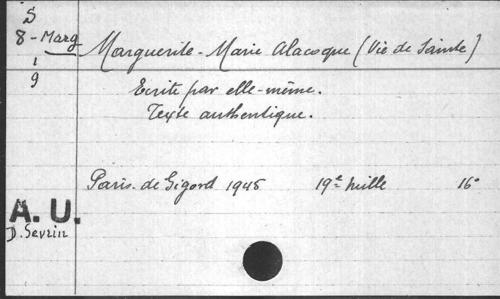 S
8 - Marg
1
9
Marguerite-Marie Alacoque (Vie de Sainte)
Ecrite par elle-même.
Texte authentique.
Paris. de Gigord 1945 19e mille 16°
A. U.
D. Sevrin